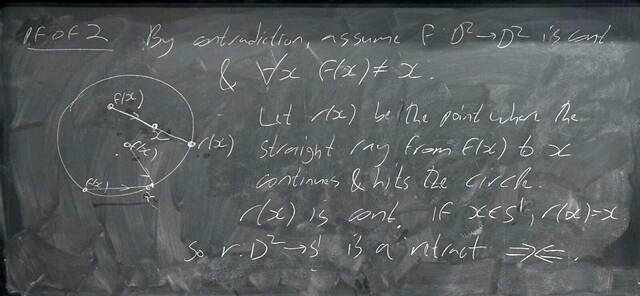 PF OF 2. By contradiction, assume f: D²→D² is cont.
& ∀x f(x)≠x.
f(x)
x
r(x)
f(x)
f(x)
x
Let r(x) be the point where the
straight ray from f(x) to x
continues & hits the circle.
r(x) is cont. if x∈S¹, r(x)=x.
So r: D²→S¹ is a retract ⇒⇐.